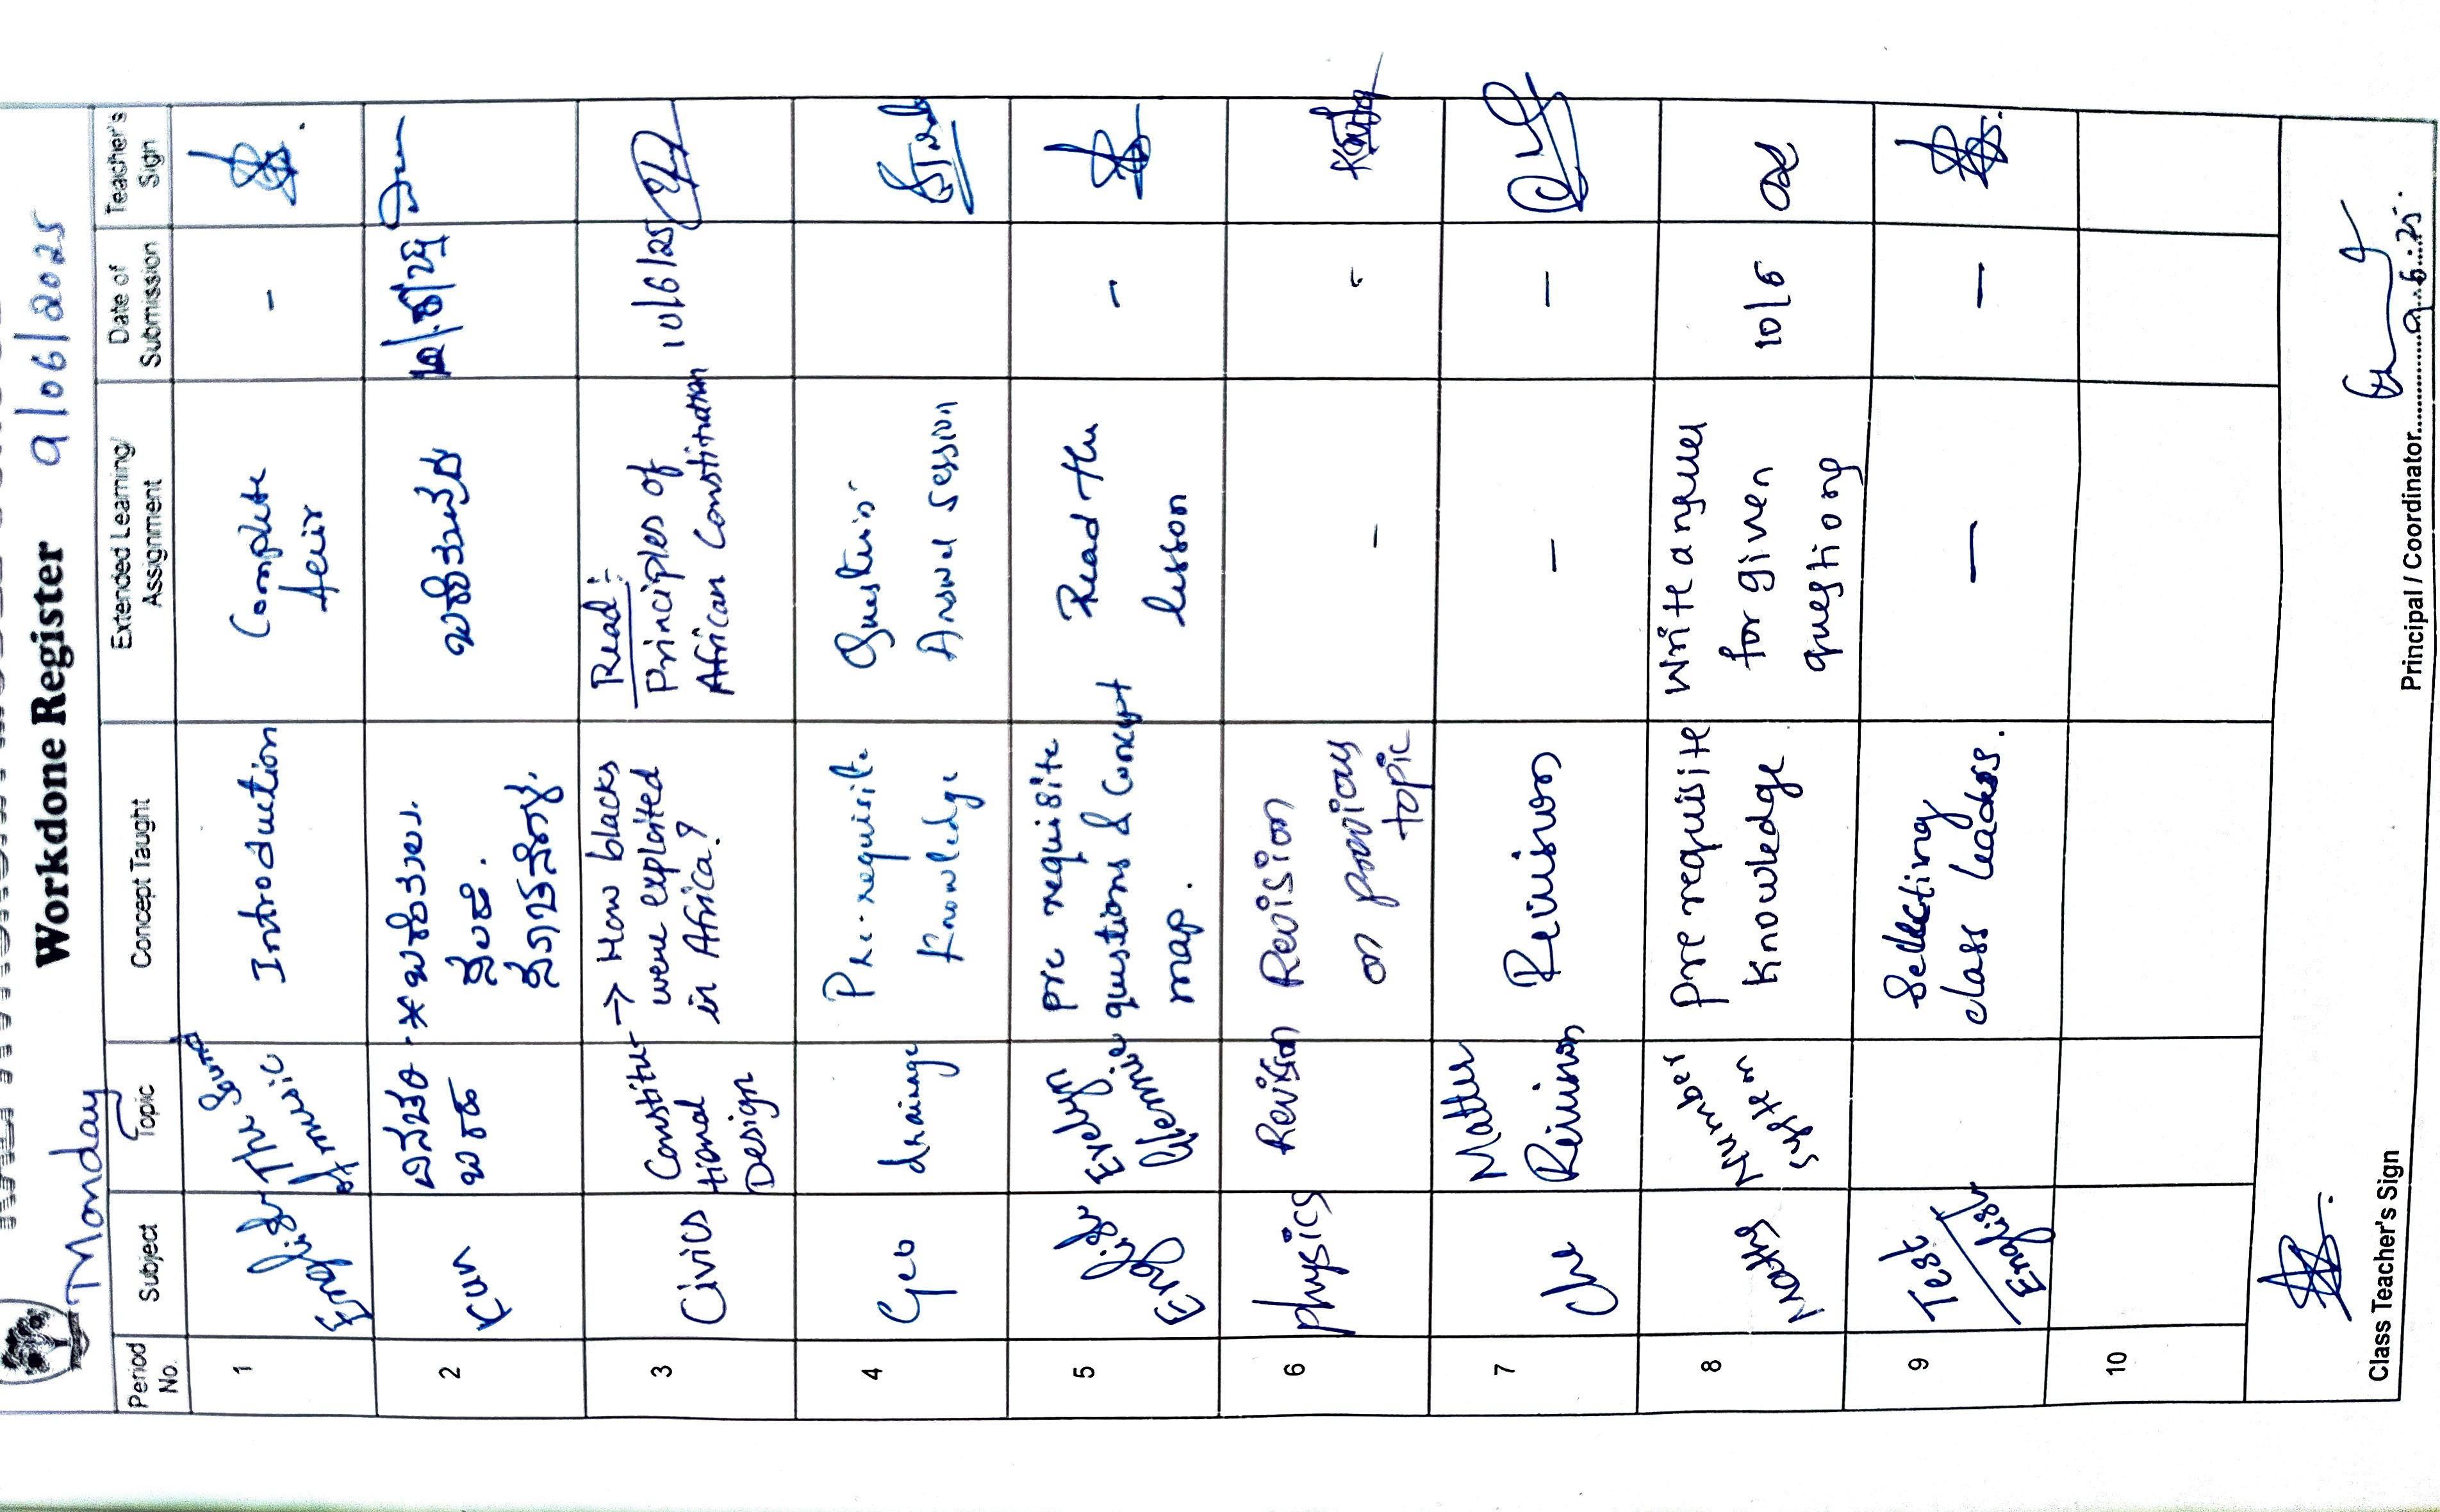 Workdone Register
Monday
9/06/2025
Period No.
Subject
Topic
Concept Taught
Extended Learning/ Assignment
Date of Submission
Teacher's Sign
1
English
The Sound of music
Introduction
Complete
-
2
Kan
3
Civics
Constitutional Design
→ How blacks
were exploited
in Africa?
Read:
Principles of
African Constitution
10/6/25
4
Geo
drainage
Pre-requisite
knowledge
Answer Session
5
English
Evelyn Glennie
pre requisite
questions & concept
map.
Read the
lesson
-
6
physics
Revision
Revision
on previous
topic
-
7
Che
Matter
Revision
Revision
-
-
8
Maths
Number
system
Pre requisite
knowledge
Write answer
for given
questions
10/6
9
Test/English
Selecting
class leaders.
-
-
10
Class Teacher's Sign
Principal / Coordinator
9.6.25.